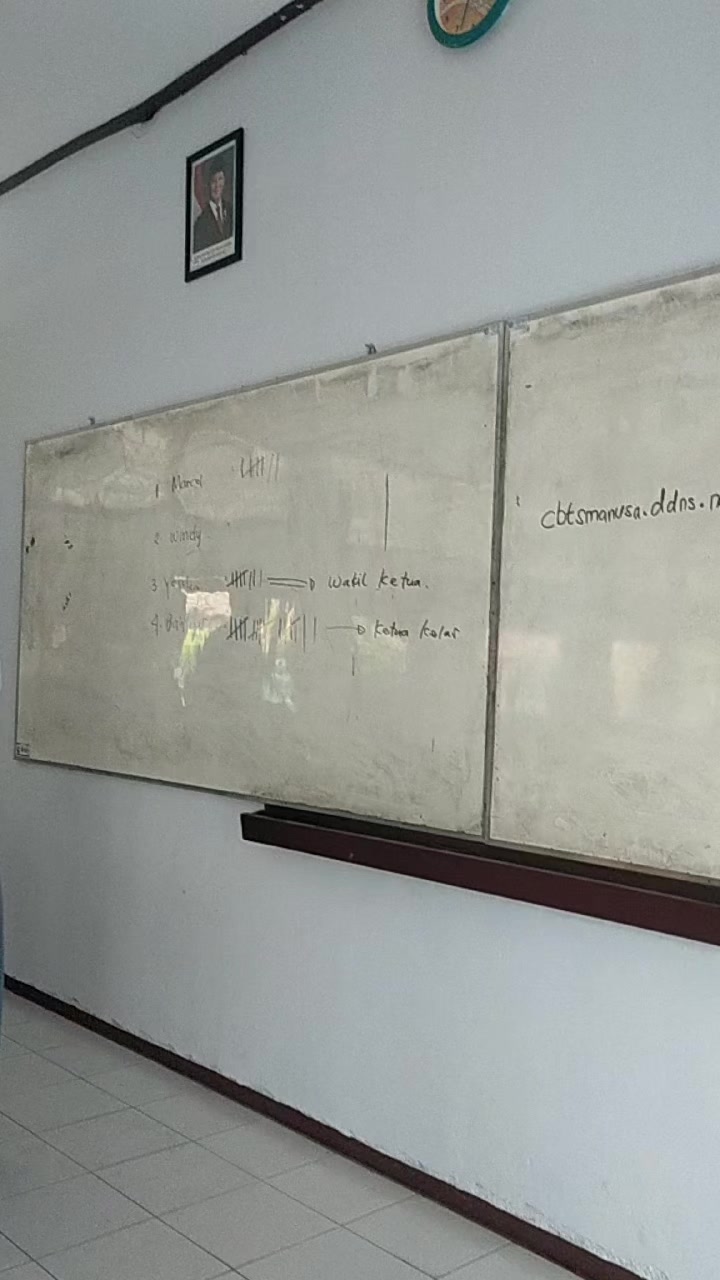 1. Marcel
2. Windy
3.
Wakil Ketua.
4.
Ketua Kelas
cbtsmanusa.ddns.n